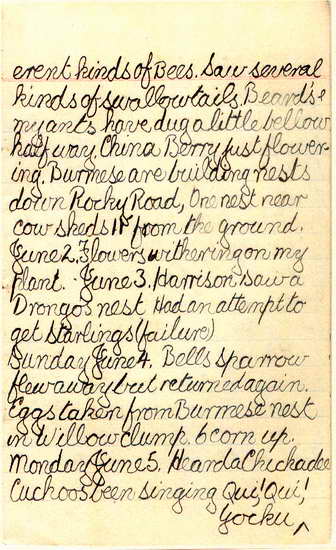 erent kinds of Bees. Saw several
kinds of swallowtails. Beard's &
my ants have dug a little bellow
half way. China Berry just flower-
ing. Burmese are building nests
down Rocky Road, One nest near
cow sheds from the ground.
June 2. Flowers withering on my
plant. June 3. Harrison saw a
Drongos nest Had an attempt to
get Starlings (failure)
Sunday June 4. Bells Sparrow
flew away but returned again.
Eggs taken from Burmese nest
in Willow clump. 6 corn up.
Monday June 5. Heard a Chickadee
Cuckoos been singing Qui! Qui!